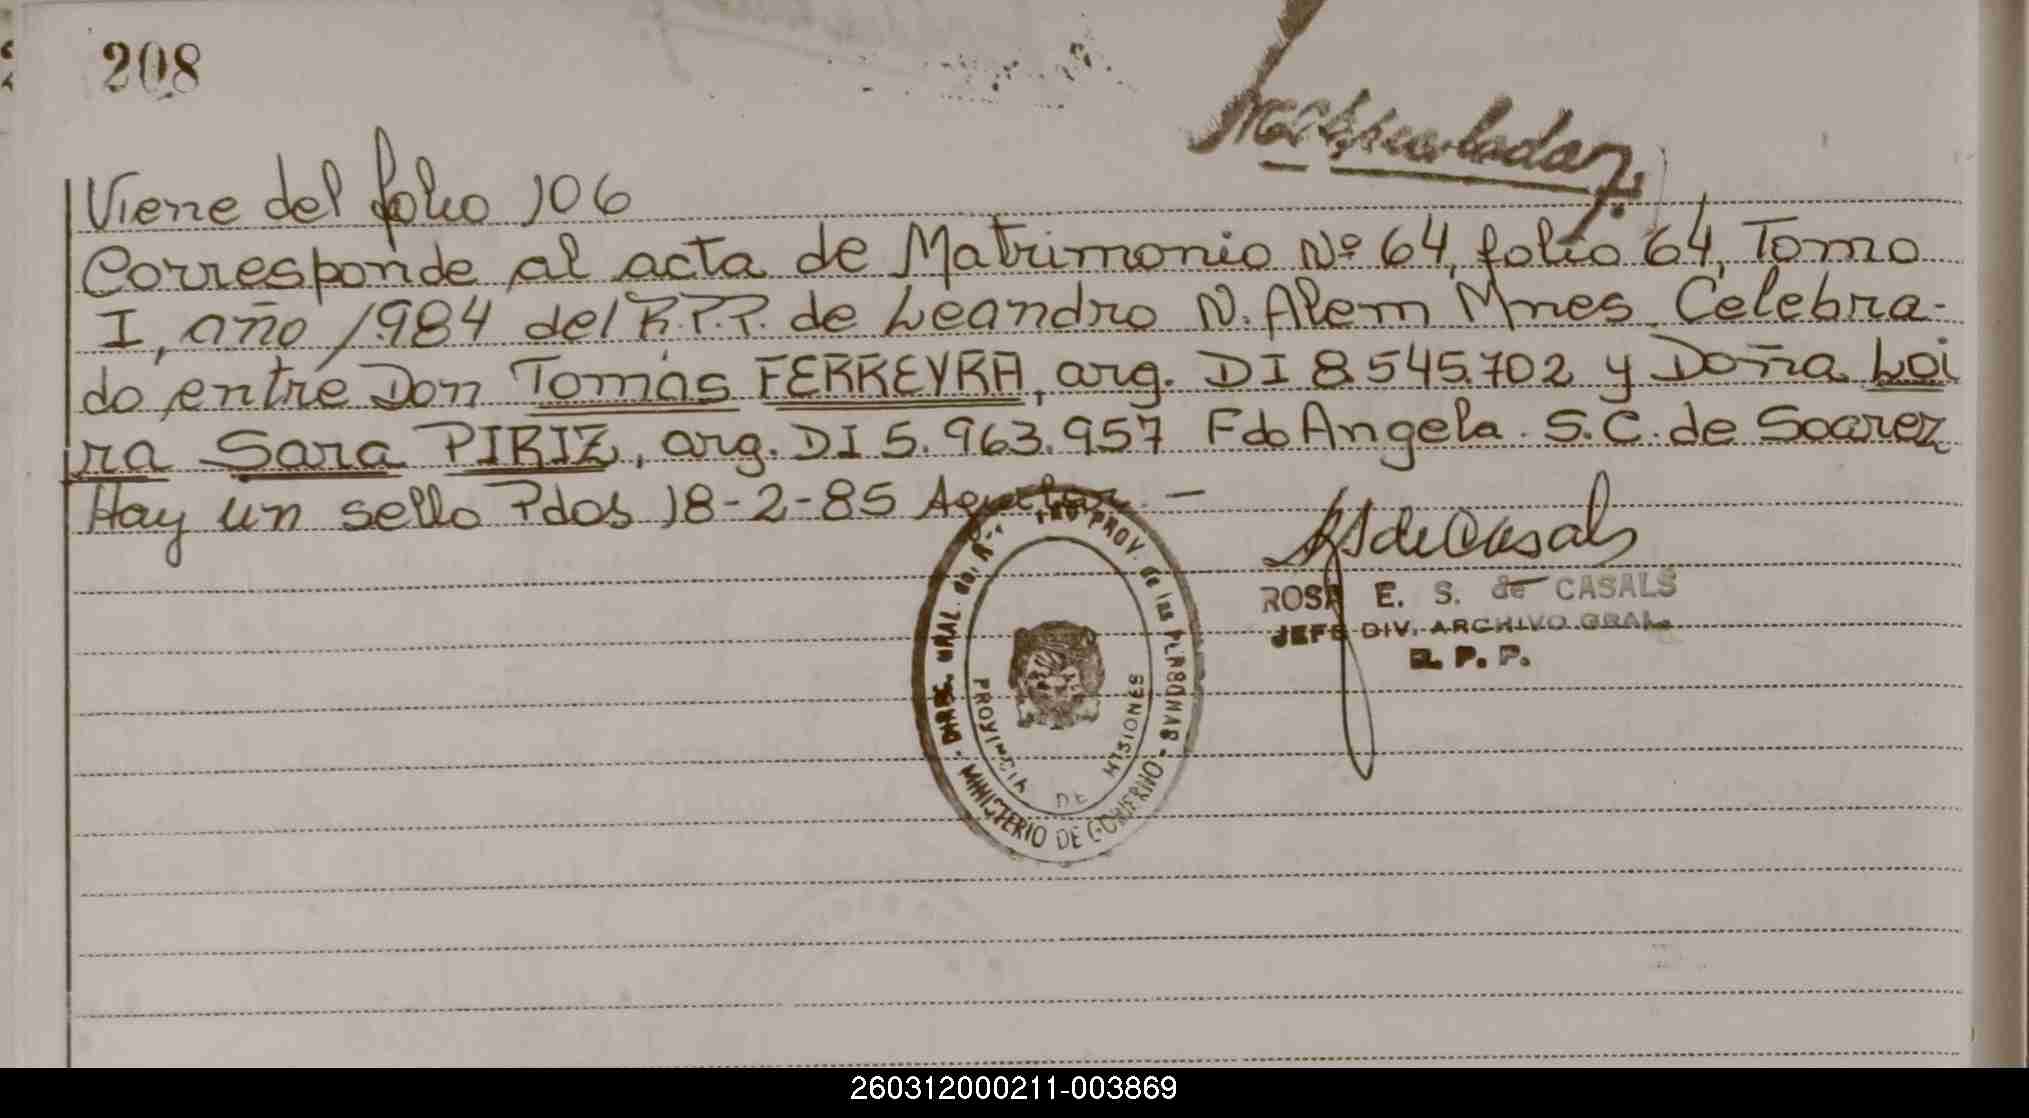 208
Viene del folio 106
Corresponde al acta de Matrimonio Nº 64, folio 64, Tomo
I, año 1984 del R.P.P. de Leandro N. Alem Mnes Celebra-
do entre Don Tomás FERREYRA, arg. DI 8.545.702 y Doña Loi
ra Sara PIRIZ, arg. DI 5.963.957 Fdo Angela S.C. de Soarez
Hay un sello Pdos 18-2-85 Aguilar. —
ROSA E. S. de CASALS
JEFE DIV. ARCHIVO GRAL.
R. P. P.
PROV. de las PERSONAS
MINISTERIO DE GOBIERNO
PROVINCIA DE MISIONES
260312000211-003869